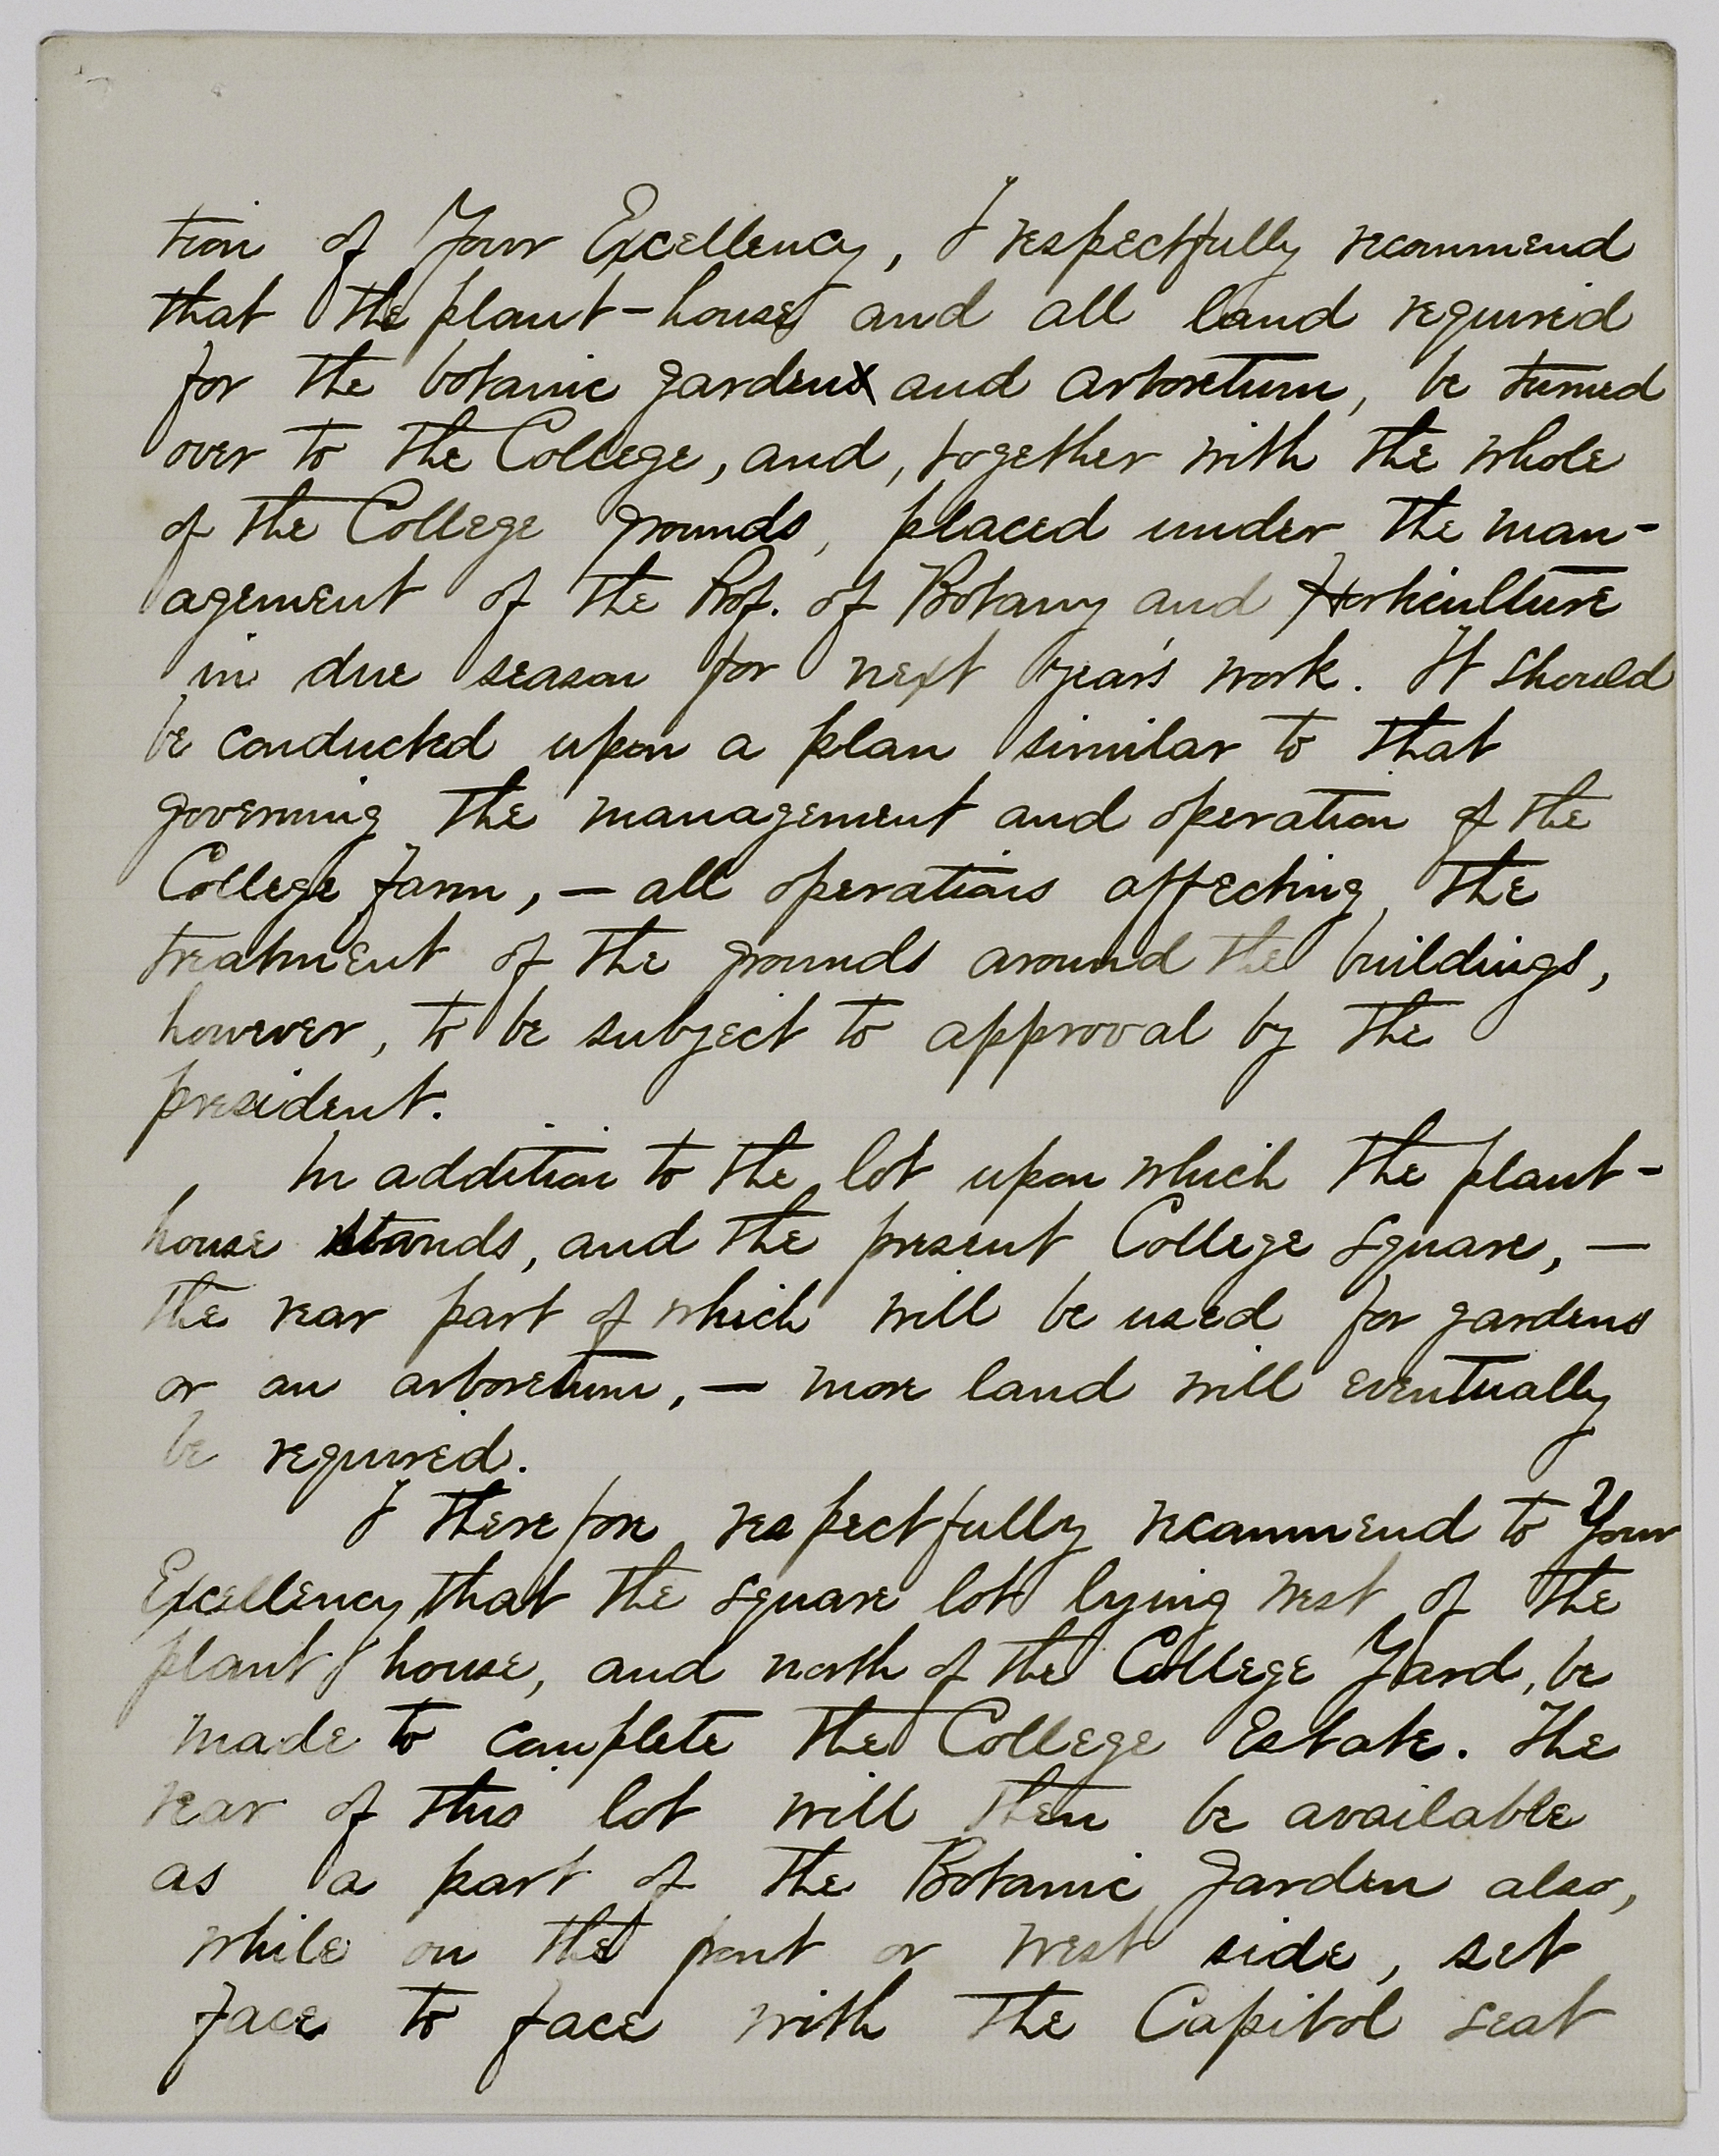 tion of Your Excellency, I respectfully recommend
that the plant-house and all land required
for the botanic garden and arboretum, be turned
over to the College, and, together with the whole
of the College grounds, placed under the man-
agement of the Prof. of Botany and Horticulture
in due season for next year's work. It should
be conducted upon a plan similar to that
governing the management and operation of the
College farm, — all operations affecting the
treatment of the grounds around the buildings,
however, to be subject to approval by the
president.
In addition to the lot upon which the plant-
house stands, and the present College Square, —
the rear part of which will be used for gardens
or an arboretum, — more land will eventually
be required.
I therefore respectfully recommend to Your
Excellency that the square lot lying west of the
plant house, and north of the College Yard, be
made to complete the College Estate. The
rear of this lot will then be available
as a part of the Botanic Garden also,
while on the front or west side, set
face to face with the Capitol seat